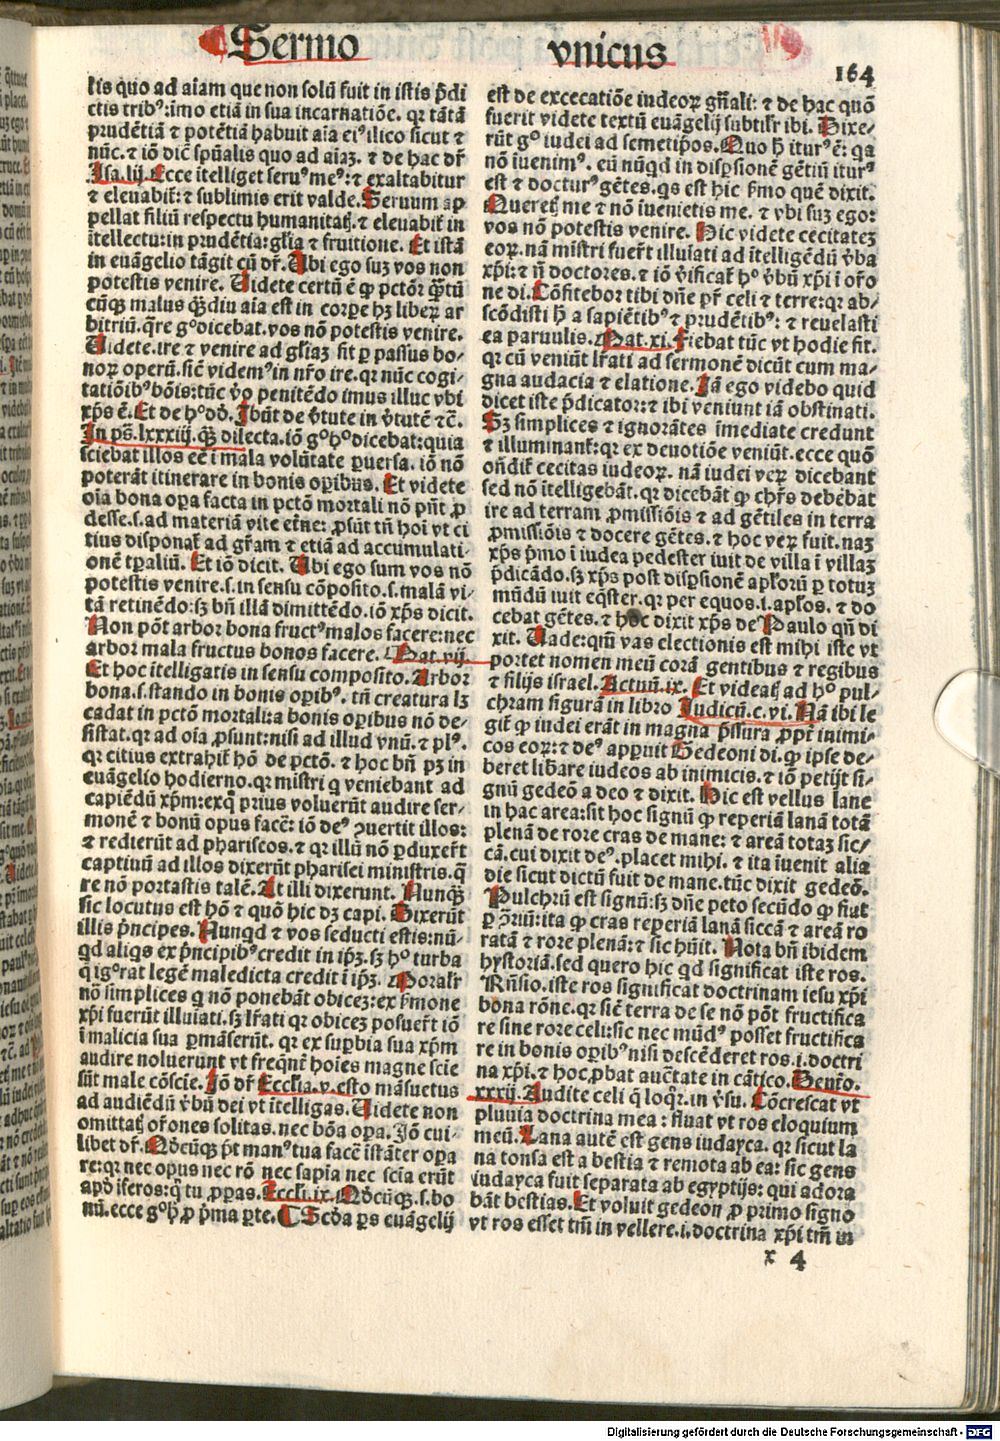 Sermo vnicus
164
lis quo ad aiam que non solū fuit in istis p̄di
ctis trib⁹: imo etiā in sua incarnatiōe. qr tātā
prudētiā ⁊ potētiā habuit aīa ei⁹ ilico sicut ⁊
nūc. ⁊ iō dic̄ spūalis quo ad aīaꝫ. ⁊ de hac dr̄
Isa. lij. Ecce ītelliget seru⁹ me⁹: ⁊ exaltabitur
⁊ eleuabit̄: ⁊ sublimis erit valde. Seruum ap
pellat filiū respectu humanitatꝭ. ⁊ eleuabit̄ in
ītellectu: in prudētia: gl̄ia ⁊ fruitione. Et istā
in euāgelio tāgit cū dr̄. Ubi ego suꝫ vos non
potestis venire. Uidete certū ē ꝙ pctōr q̄ꝫtū
cūqꝫ malus q̄ꝫdiu aīa est in corpe hꝫ liberꝫ ar
bitriū. q̄re g⁰ dicebat. vos nō potestis venire.
Uidete. ire ⁊ venire ad gl̄iaꝫ sit ꝑ passus bo-
noꝝ operū. sic̄ videm⁹ in nr̄o ire. qr nūc cogi-
tatiōib⁹ bōis: tūc v̄o penitēdo imus illuc vbi
xp̄s ē. Et de h⁰ dō. Ibūt de v̄tute in v̄tutē ⁊c̄.
In ps̄. lxxxiij. q̄ꝫ dilecta. iō g⁰ h⁰ dicebat: quia
sciebat illos eē ī mala volūtate ꝑuersa. iō nō
poterāt itinerare in bonis oꝑibus. Et videte
oīa bona oꝑa facta in pctō mortali nō pn̄t ꝓ
desse. s. ad materiā vite etn̄e: ꝓsūt tn̄ hoī vt ci
tius disponat̄ ad gr̄am ⁊ etiā ad accumulati-
onē tꝑaliū. Et iō dicit. Ubi ego sum vos nō
potestis venire. s. in sensu cōposito. s. malā vi-
tā retinēdo: sꝫ bn̄ illā dimittēdo. iō xp̄s dicit.
Non pōt arbor bona fruct⁹ malos facere: nec
arbor mala fructus bonos facere. Mat. vij.
Et hoc ītelligatis in sensu composito. Arbor
bona. s. stando in bonis oꝑib⁹. tn̄ creatura lꝫ
cadat in pctō mortali: a bonis oꝑibus nō de-
sistat. qr ad oīa ꝓsunt: nisi ad illud vnū. ⁊ pl⁹.
qr citius extrahit̄ hō de pctō. ⁊ hoc bn̄ pꝫ in
euāgelio hodierno. qr mīstri q̄ veniebant ad
capiēdū xp̄m: exq̄ prius voluerūt audire ser-
monē ⁊ bonū opus facē: iō de⁹ ꝯuertit illos:
⁊ redierūt ad phariseos. ⁊ qr illū nō ꝑduxer̄t
captiuū ad illos dixerūt pharisei ministris. q̄
re nō portastis talē. At illi dixerunt. Nunqꝫ
sic locutus est hō ⁊ quō hic dꝫ capi. Dixerūt
illis p̄ncipes. Nunqd ⁊ vos seducti estis: nū-
qd aliqs ex p̄ncipib⁹ credit in ip̄ꝫ. sꝫ h⁰ turba
q̄ ig⁰rat legē maledicta credit ī ip̄ꝫ. Moralr̄
nō simplices q nō ponebāt obiceꝫ: ex s̄mone
xp̄i fuerūt illuīati. sꝫ lr̄ati qr obiceꝫ posuer̄t iō
ī malicia sua ꝑmāserūt. qr ex suꝑbia sua xp̄m
audire noluerunt vt freqn̄t hoīes magne scīe
sūt male cōscīe. Iō dr̄ Eccl̄ia. v. esto māsuetus
ad audiēdū v̄bū dei vt ītelligas. Uidete non
omittatꝭ or̄ones solitas. nec bōa oꝑa. Iō cui-
libet dr̄. Qḋcūqꝫ p̄t man⁹ tua facē istāter oꝑa
re: qr nec opus nec rō nec sapīa nec scīa erūt
apḋ īferos: q̄ tu ꝓꝑas. Eccl̄i. ix. Qḋcūqꝫ. s. bo
nū. ecce g⁰ h̄ ꝓ p̄ma ꝑte. ¶ Scḋa ꝑs euāgelij
est de excecatiōe iudeoꝝ gn̄ali: ⁊ de hac quō
fuerit videte textū euāgelij subtilr̄ ibi. Dixe-
rūt g⁰ iudei ad semetip̄os. Quo h̄ itur⁹ ē: qa
nō īuenim⁹. eū nūqd in disꝑsionē gētiū itur⁹
est ⁊ doctur⁹ gētes. qs est hic s̄mo quē dixit.
Queretꝭ me ⁊ nō īuenietis me. ⁊ vbi suꝫ ego:
vos nō potestis venire. Hic videte cecitateꝫ
eoꝝ. nā mīstri fuer̄t illuīati ad ītelligēdū v̄ba
xp̄i: ⁊ n̄ doctores. ⁊ iō v̄ificat̄ h⁰ v̄bū xp̄i ī or̄o
ne di. Cōfitebor tibi dn̄e pr̄ celi ⁊ terre: qr ab-
scōdisti h̄ a sapiētib⁹ ⁊ prudētib⁹: ⁊ reuelasti
ea paruulis. Mat. xi. Fiebat tūc vt hodie fit.
qr cū veniūt lr̄ati ad sermonē dicūt cum ma-
gna audacia ⁊ elatione. Iā ego videbo quid
dicet iste p̄dicator: ⁊ ibi veniunt iā obstinati.
Sꝫ simplices ⁊ ignorātes īmediate credunt
⁊ illuminant̄: qr ex deuotiōe veniūt. ecce quō
on̄dit̄ cecitas iudeoꝝ. nā iudei veꝝ dicebant
sed nō ītelligebāt. qr dicebāt ꝙ chr̄s debebat
ire ad terram ꝓmissiōis ⁊ ad gētiles in terra
ꝓmissiōis ⁊ docere gētes. ⁊ hoc veꝝ fuit. naꝫ
xp̄s p̄mo ī iudea pedester iuit de villa ī villaꝫ
p̄dicādo. sꝫ xp̄s post disꝑsionē apl̄oꝝ ꝑ totuꝫ
mūdū iuit eqster. qr per equos. i. apl̄os. ⁊ do
cebat gētes. ⁊ hoc dixit xp̄s de Paulo qn̄ di
xit. Uade: qm̄ vas electionis est mihi iste vt
portet nomen meū corā gentibus ⁊ regibus
⁊ filijs israel. Actuū. ix. Et videatꝭ ad h⁰ pul-
chram figurā in libro Iudicū. c. vi. Nā ibi le
git̄ ꝙ iudei erāt in magna p̄ssura ꝓpt̄ inimi-
cos eoꝝ: ⁊ de⁹ apꝑuit Gedeoni di. ꝙ ipse de-
beret lib̄are iudeos ab inimicis. ⁊ iō petijt si-
gnū gedeō a deo ⁊ dixit. Hic est vellus lane
in hac area: sit hoc signū ꝙ reperiā lanā totā
plenā de rore cras de mane: ⁊ areā totaꝫ sic-
cā. cui dixit de⁹. placet mihi. ⁊ ita īuenit alia
die sicut dictū fuit de mane. tūc dixit gedeō.
Pulchrū est signū: sꝫ dn̄e peto secūdo ꝙ fiat
ꝑ ꝯriū: ita ꝙ cras reperiā lanā siccā ⁊ areā ro
ratā ⁊ rore plenā: ⁊ sic hūit. Nota bn̄ ibidem
hystoriā. sed quero hic qd significat iste ros.
Rn̄sio. iste ros significat doctrinam iesu xp̄i
bona rōne. qr sic̄ terra de se nō pōt fructifica
re sine rore celi: sic nec mūd⁹ posset fructifica
re in bonis oꝑib⁹ nisi descēderet ros. i. doctri
na xp̄i. ⁊ hoc ꝓbat auctate in cātico. Deutro.
xxxij. Audite celi q̄ loqr̄. in v̄su. Cōcrescat vt
pluuia doctrina mea: fluat vt ros eloquium
meū. Lana autē est gens iudayca. qr sicut la
na tonsa est a bestia ⁊ remota ab ea: sic gens
iudayca fuit separata ab egyptijs: qui adora
bāt bestias. Et voluit gedeon ꝓ primo signo
vt ros esset tm̄ in vellere. i. doctrina xp̄i tm̄ in
x 4
Digitalisierung gefördert durch die Deutsche Forschungsgemeinschaft - DFG